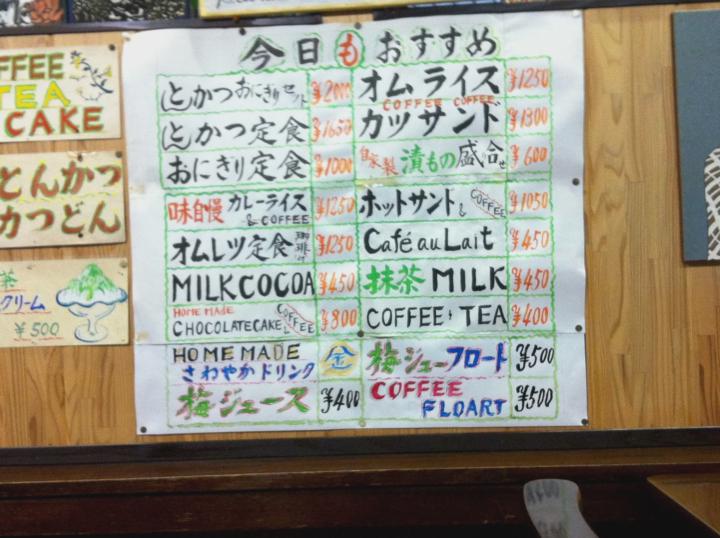 今日もおすすめ
とかつおにぎりセット ¥2000
とかつ定食 ¥1650
おにぎり定食 ¥1000
味自慢 カレーライス & COFFEE ¥1250
オムレツ定食 珈琲付 ¥1250
MILK COCOA ¥450
HOME MADE
CHOCOLATE CAKE & COFFEE ¥800
HOME MADE
さわやかドリンク
梅ジュース ¥400
オムライス ¥1250
COFFEE COFFEE
カツサンド ¥1300
自家製 漬もの盛合せ ¥600
ホットサンド & COFFEE ¥1050
Café au Lait ¥450
抹茶 MILK ¥450
COFFEE・TEA ¥400
梅ジューフロート ¥500
COFFEE
FLOART ¥500
FFEE
TEA
CAKE
とんかつ
かつどん
茶
クリーム
¥500